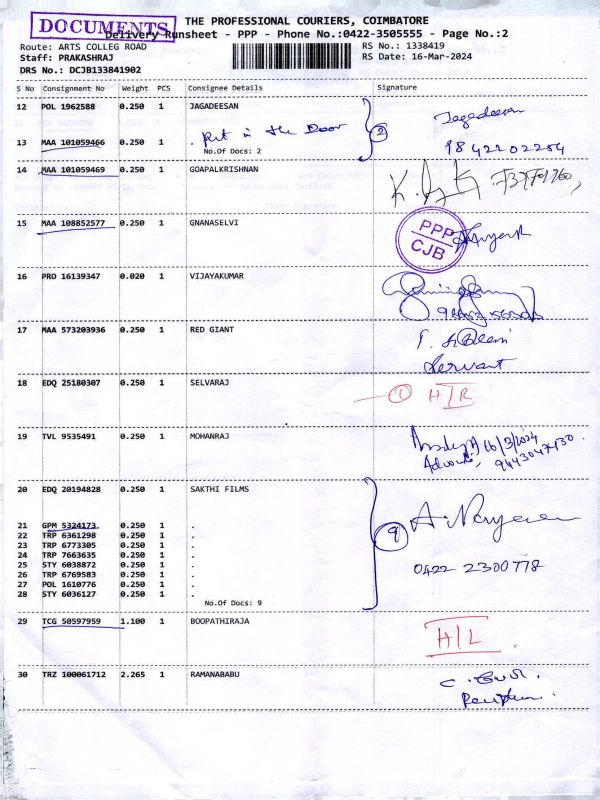 DOCUMENTS
THE PROFESSIONAL COURIERS, COIMBATORE
Delivery Runsheet - PPP - Phone No.:0422-3505555 - Page No.:2
Route: ARTS COLLEG ROAD
Staff: PRAKASHRAJ
DRS No.: DCJB133841902
RS No.: 1338419
RS Date: 16-Mar-2024
S No Consignment No Weight PCS Consignee Details Signature
12 POL 1962588 0.250 1 JAGADEESAN Jagadeesan
13 MAA 101059466 0.250 1 . Put in the Door 2 9842202204
No.Of Docs: 2
14 MAA 101059469 0.250 1 GOAPALKRISHNAN
15 MAA 108852577 0.250 1 GNANASELVI
PPP
CJB
16 PRO 16139347 0.020 1 VIJAYAKUMAR
17 MAA 573203936 0.250 1 RED GIANT
Servant
18 EDQ 25180307 0.250 1 SELVARAJ 1 H/R
19 TVL 9535491 0.250 1 MOHANRAJ 16/3/2024
9443047130
20 EDQ 20194828 0.250 1 SAKTHI FILMS
21 GPM 5324173 0.250 1 . 9
22 TRP 6361298 0.250 1 .
23 TRP 6773305 0.250 1 .
24 TRP 7663635 0.250 1 .
25 STY 6038872 0.250 1 . 0422 2300778
26 TRP 6769583 0.250 1 .
27 POL 1610776 0.250 1 .
28 STY 6036127 0.250 1 .
No.Of Docs: 9
29 TCG 50597959 1.100 1 BOOPATHIRAJA H/L
30 TRZ 100061712 2.265 1 RAMANABABU